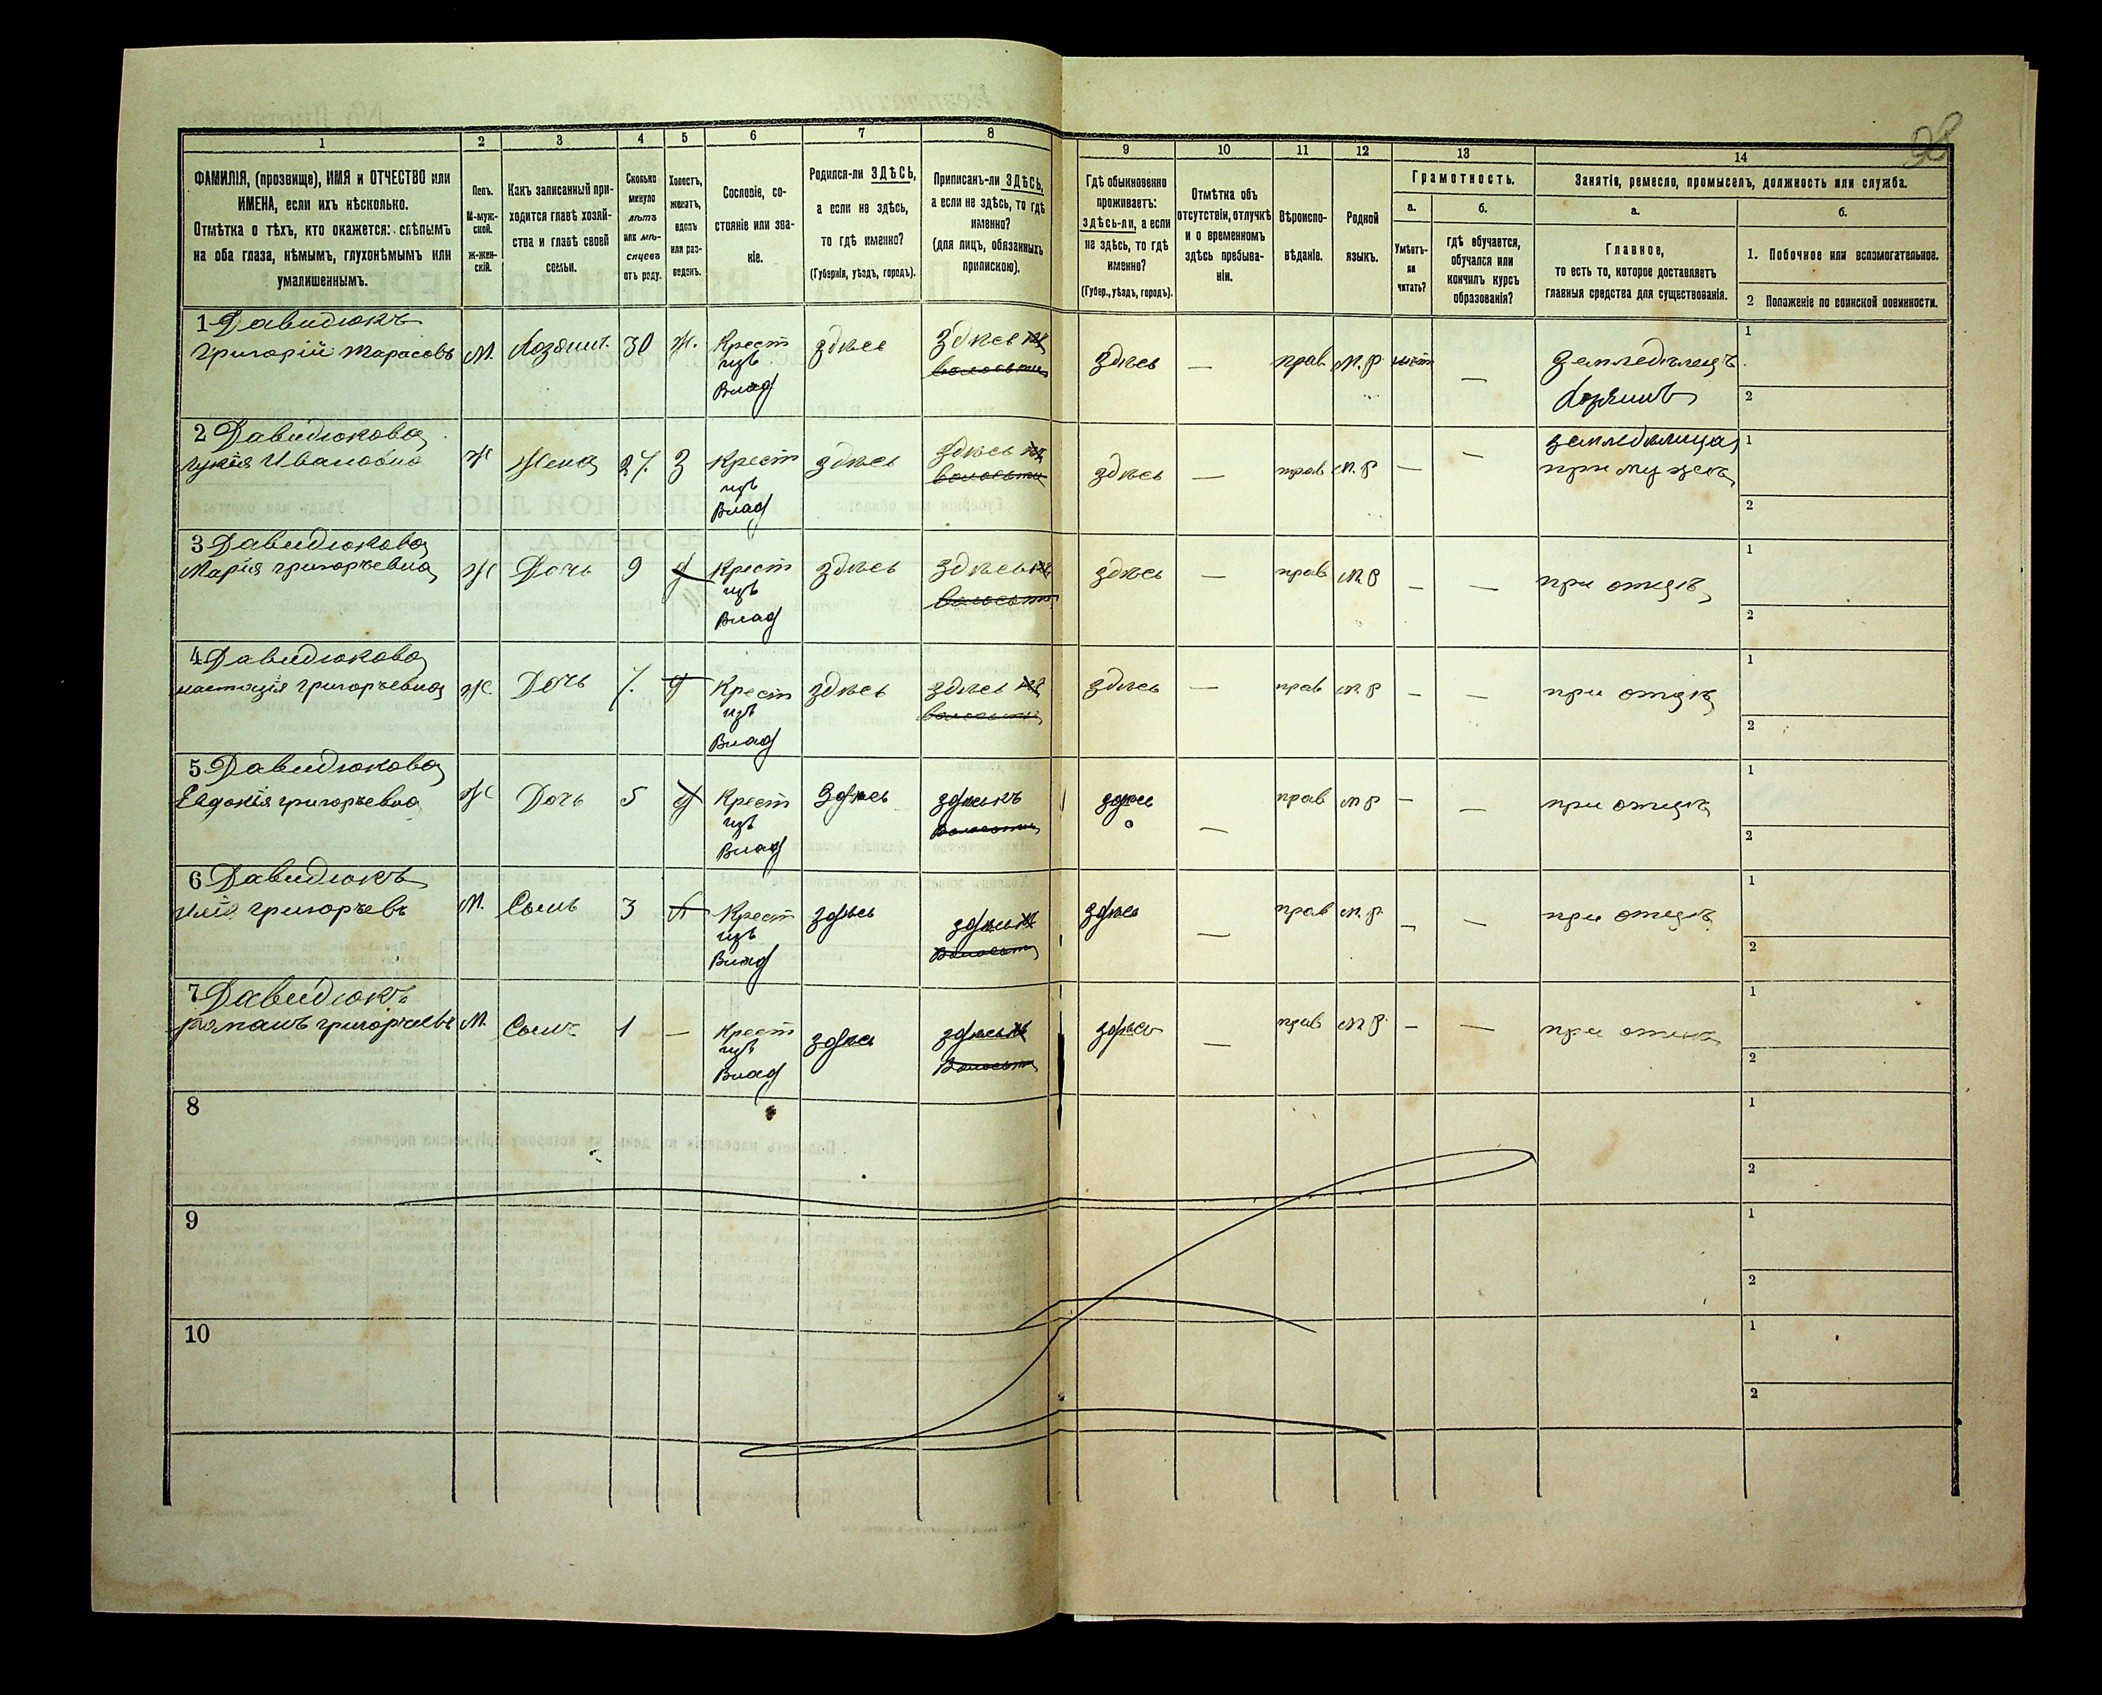 28
1 2 3 4 5 6 7 8 9 10 11 12 13 14
ФАМИЛІЯ, (прозвище), ИМЯ и ОТЧЕСТВО или
ИМЕНА, если ихъ нѣсколько.
Отмѣтка о тѣхъ, кто окажется: слѣпымъ
на оба глаза, нѣмымъ, глухонѣмымъ или
умалишеннымъ.
Полъ.
М-муж-
ской.
Ж-жен-
скій.
Какъ записанный при-
ходится главѣ хозяй-
ства и главѣ своей
семьи.
Сколько
минуло
лѣтъ
или мѣ-
сяцевъ
отъ роду.
Холостъ,
женатъ,
вдовъ
или раз-
веденъ.
Сословіе, со-
стояніе или зва-
ніе.
Родился-ли ЗДѢСЬ,
а если не здѣсь,
то гдѣ именно?
(Губернія, уѣздъ, городъ).
Приписанъ-ли ЗДѢСЬ,
а если не здѣсь, то гдѣ
именно?
(для лицъ, обязанныхъ
припискою).
Гдѣ обыкновенно
проживаетъ:
здѣсь-ли, а если
не здѣсь, то гдѣ
именно?
(Губер., уѣздъ, городъ).
Отмѣтка объ
отсутствіи, отлучкѣ
и о временномъ
здѣсь пребыва-
ніи.
Вѣроиспо-
вѣданіе.
Родной
языкъ.
Грамотность.
а.
Умѣетъ-
ли
читать?
б.
гдѣ обучается,
обучался или
кончилъ курсъ
образованія?
Занятіе, ремесло, промыселъ, должность или служба.
а.
Главное,
то есть то, которое доставляетъ
главныя средства для существованія.
б.
1. Побочное или вспомогательное.
2 Положеніе по воинской повинности.
1 Давидюкъ
Григорій Тарасовъ М. Хозяин. 30 Ж. Крест
изъ
Влад здѣсь здѣсь
волости
здѣсь — прав. М.Р. нѣт — Земледѣлецъ
Хозяинъ
1
2
2 Давидюкова
Лукія Ивановна Ж Жена 27. З Крест
изъ
Влад здѣсь здѣсь
волости
здѣсь — прав М.Р — — земледѣлица
при мужѣ
1
2
3 Давидюкова
Марія григорьевна Ж Дочь 9 Крест
изъ
Влад здѣсь здѣсь
волости
здѣсь — прав М Р — — при отцѣ
1
2
4 Давидюкова
настасія григорьевна Ж. Дочь 7. Крест
изъ
Влад здѣсь здѣсь
волости
здѣсь — прав М Р — — при отцѣ
1
2
5 Давидюкова
Евдокія григорьевна Ж Дочь 5 Крест
изъ
Влад здѣсь здѣсь
волости
здѣсь — прав М Р — — при отцѣ
1
2
6 Давидюкъ
григорьевъ М. Сынъ 3 Крест
изъ
Влад здѣсь здѣсь
волости
здѣсь — прав М.Р. — — при отцѣ
1
2
7 Давидюкъ
романъ григорьевъ М. Сынъ 1 — Крест
изъ
Влад здѣсь здѣсь
волости
здѣсь — прав М Р. — — при отцѣ
1
2
8
1
2
9
1
2
10
1
2